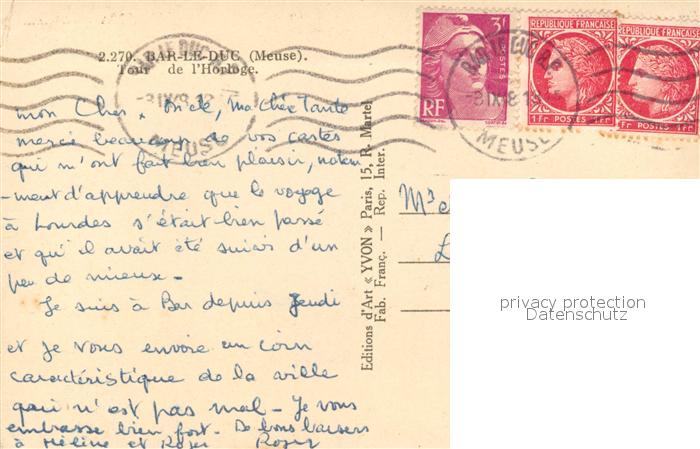 2.270. BAR-LE-DUC (Meuse).
Tour de l'Horloge.
mon Cher Oncle, ma chère Tante
merci beaucoup de vos cartes
qui m'ont fait bien plaisir, notam
-ment d'apprendre que le voyage
à Lourdes s'était bien passé
et qu'il avait été suivi d'un
peu de mieux -
Je suis à Bar depuis jeudi
et je vous envoie un coin
caractéristique de la ville
qui n'est pas mal - Je vous
embrasse bien fort. De bons baisers
à Hélène et Roger Roger
Editions d'Art « YVON » Paris, 15, R. Martel
Fab. Franç. — Rep. Inter.
3F
POSTES
RF
REPUBLIQUE FRANÇAISE
1 Fr POSTES 1 Fr
REPUBLIQUE FRANÇAISE
1 Fr POSTES 1 Fr
BAR LE DUC
MEUSE
BAR LE DUC
MEUSE
privacy protection
Datenschutz